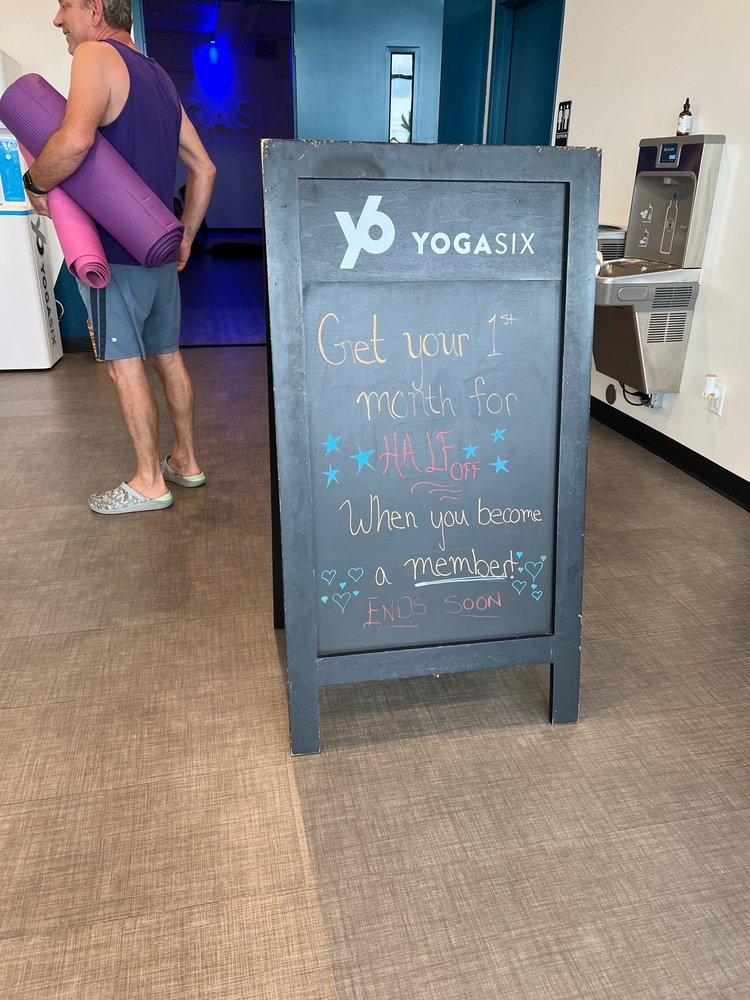 GAS
YOGASIX
y6 YOGASIX
Get your 1st
month for
HALF OFF
When you become
a member!
ENDS SOON